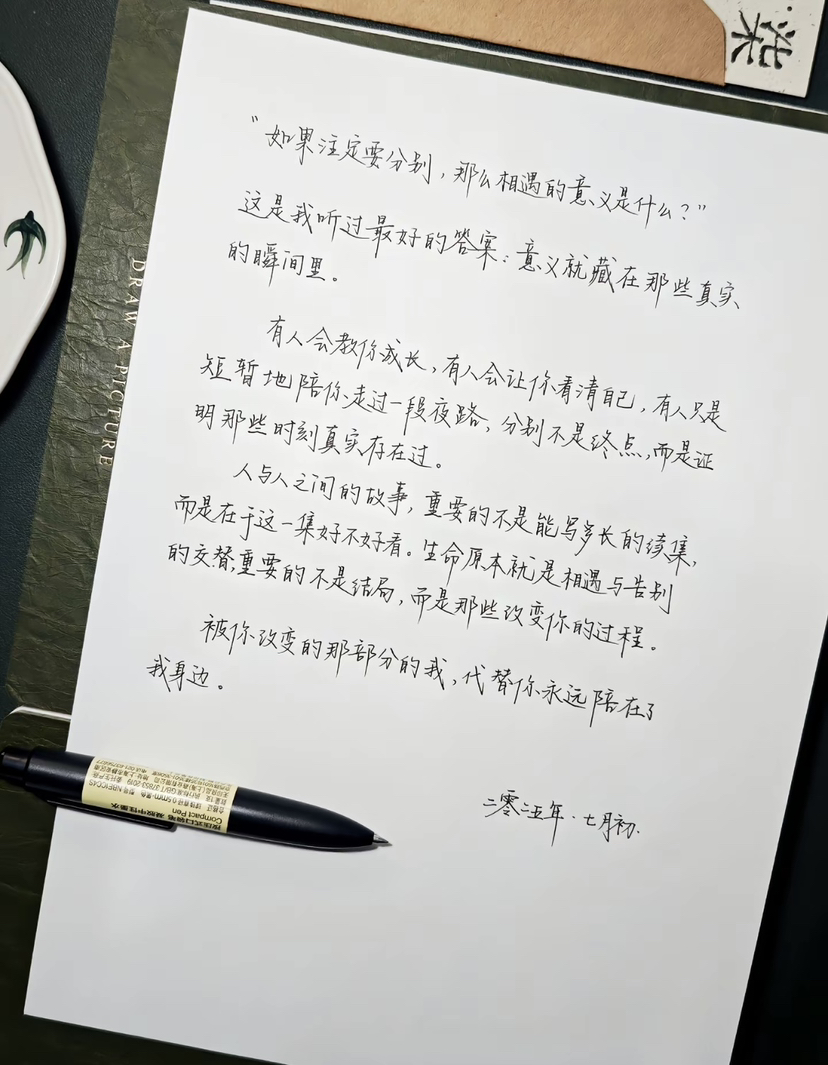 柒
“如果注定要分别，那么相遇的意义是什么？”
这是我听过最好的答案：意义就藏在那些真实
的瞬间里。
有人会教你成长，有人会让你看清自己，有人只是
短暂地陪你走过一段夜路，分别不是终点，而是证
明那些时刻真实存在过。
人与人之间的故事，重要的不是能写多长的续集，
而是在于这一集好不好看。生命原本就是相遇与告别
的交替，重要的不是结局，而是那些改变你的过程。
被你改变的那部分的我，代替你永远陪在了
我身边。
二零二五年·七月初.
DRAW A PICTURE
按压式口袋笔 凝胶中性墨水
Compact Pen